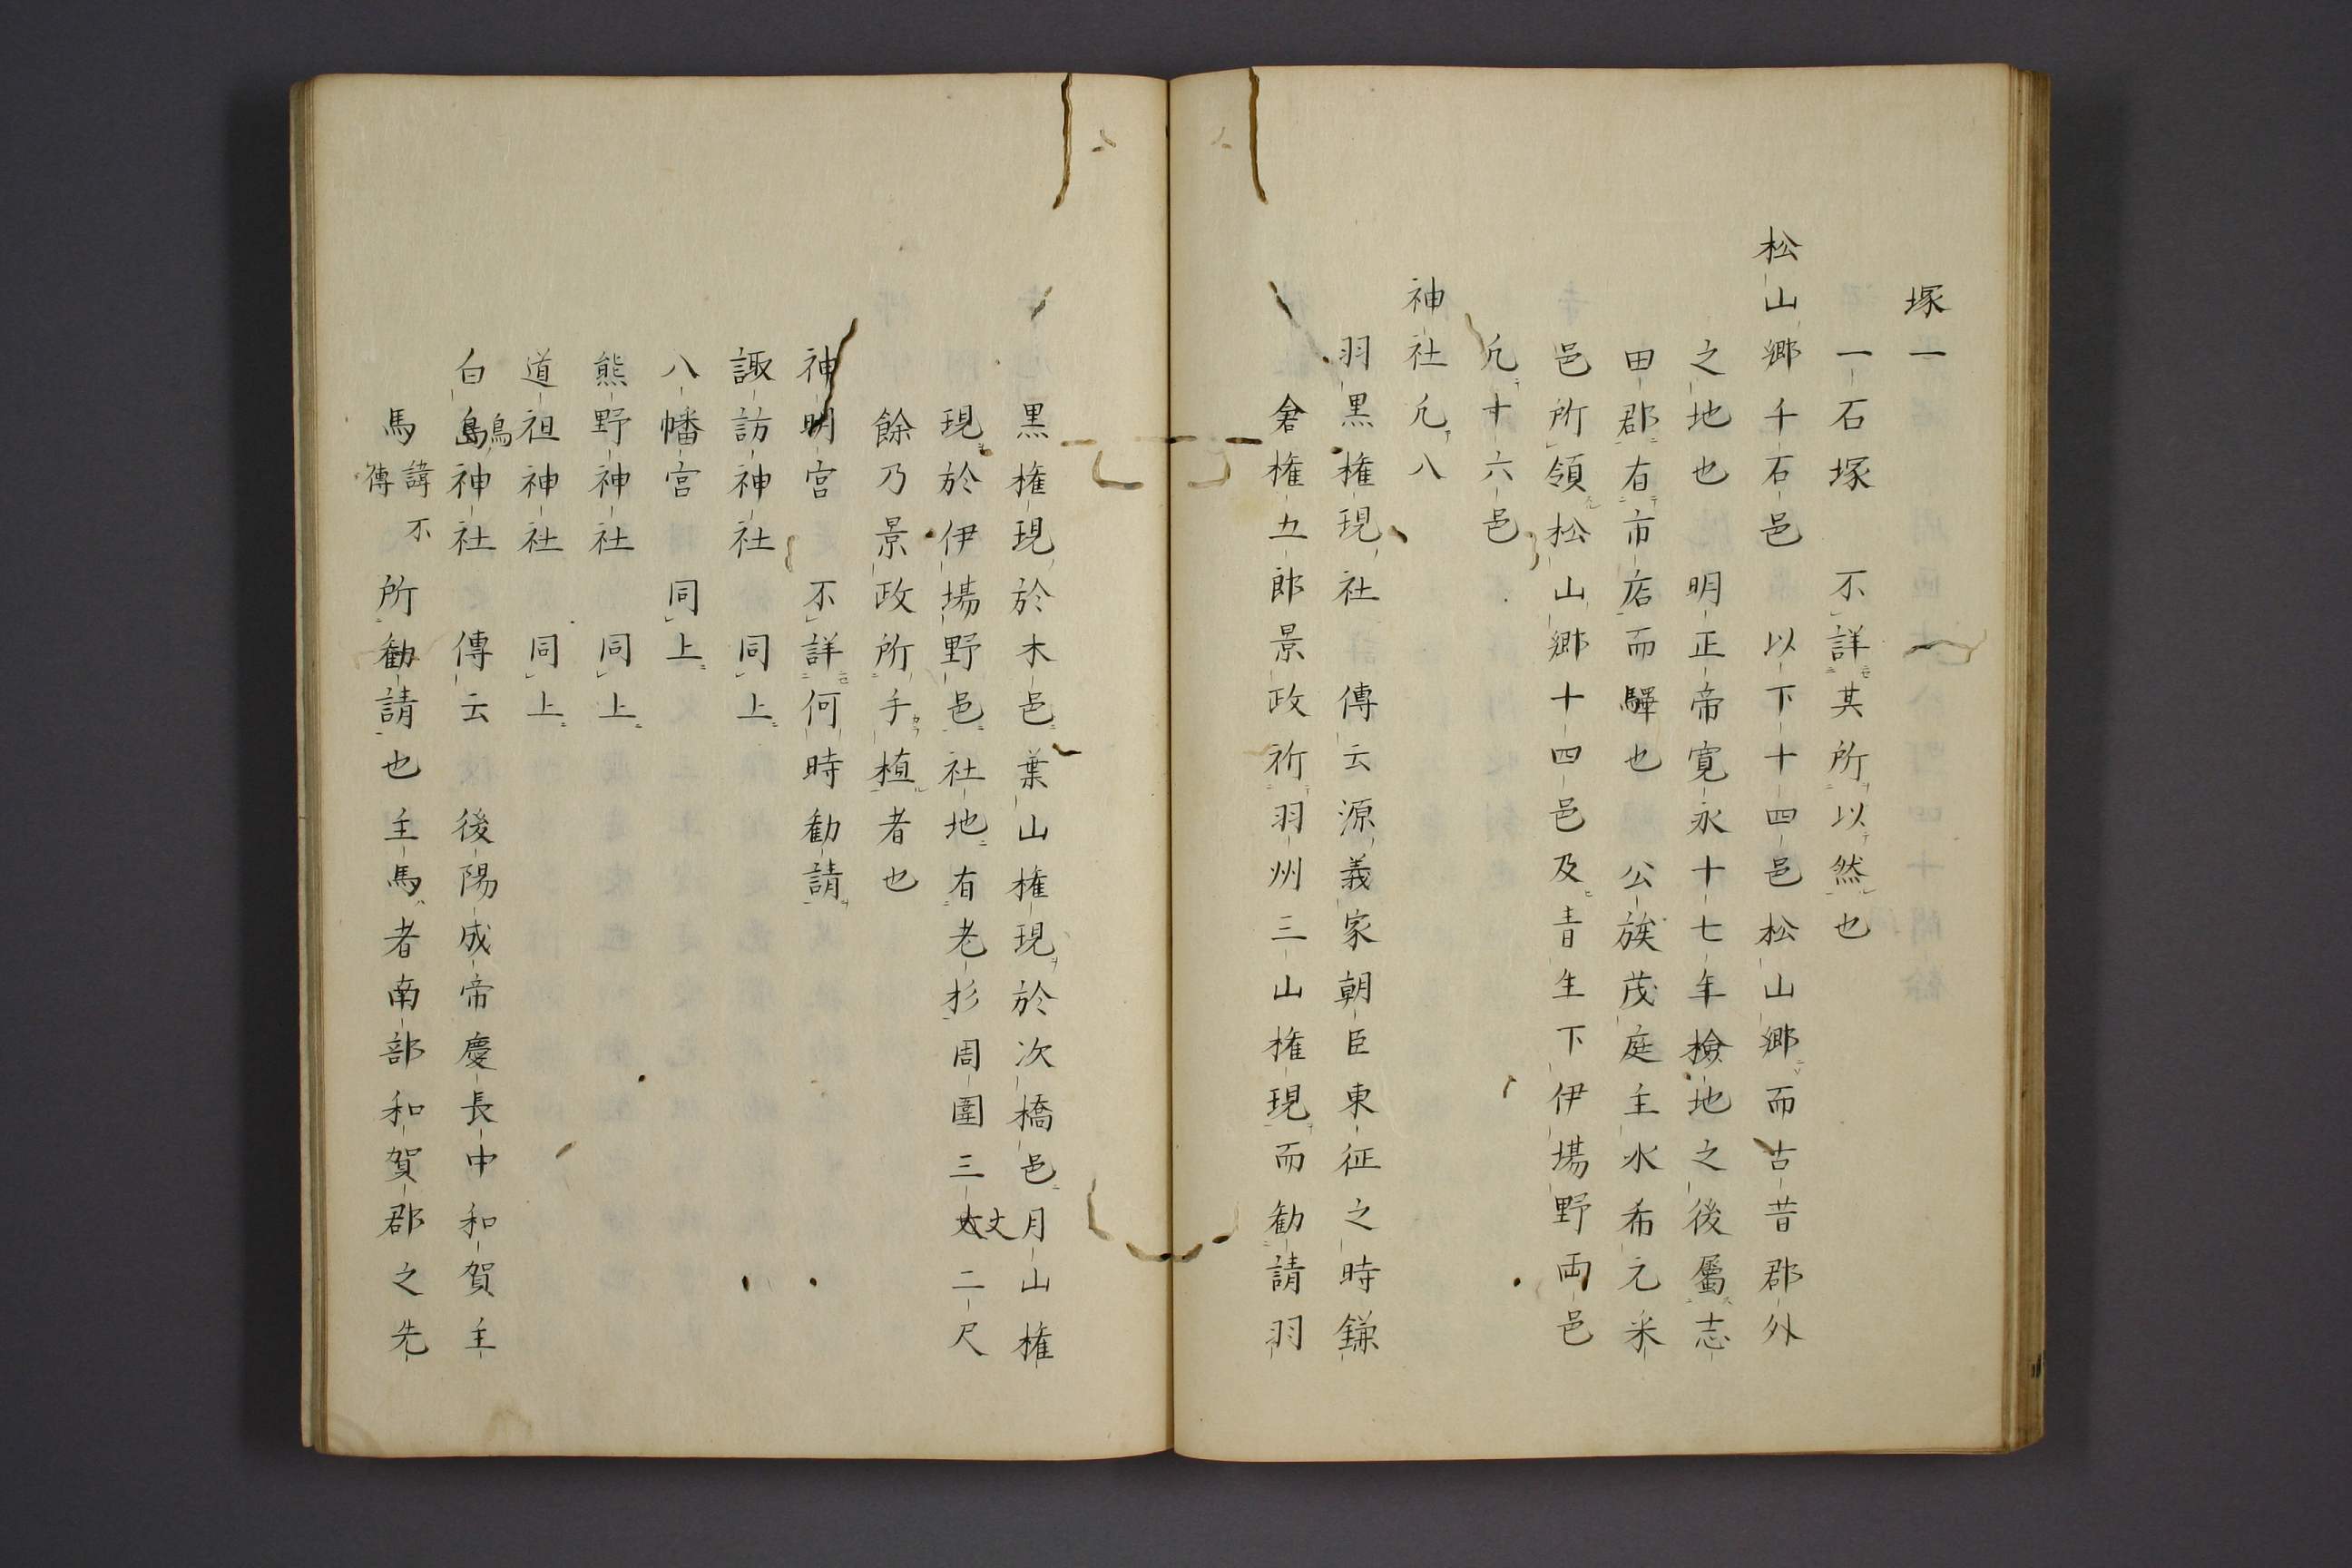 塚一
一石塚　不詳其所以然也
松山郷千石邑　以下十四邑松山郷而古昔郡外
之地也　明正帝寛永十七年檢地之後屬志
田郡有市店而驛也　公族茂庭主水希元釆
邑所領松山郷十四邑及青生下伊場野両邑
凢十六邑
神社凢八
羽黒権現社　傳云源義家朝臣東征之時鎌
倉権五郎景政祈羽州三山権現而勧請羽
黒権現於木邑葉山権現於次橋邑月山権
現於伊場野邑社地有老杉周圍三丈二尺
餘乃景政所手植者也
神明宮　不詳何時勧請
諏訪神社　同上
八幡宮　同上
熊野神社　同上
道祖神社　同上
白鳥神社　傳云　後陽成帝慶長中和賀主
馬諱不傳所勧請也主馬者南部和賀郡之先